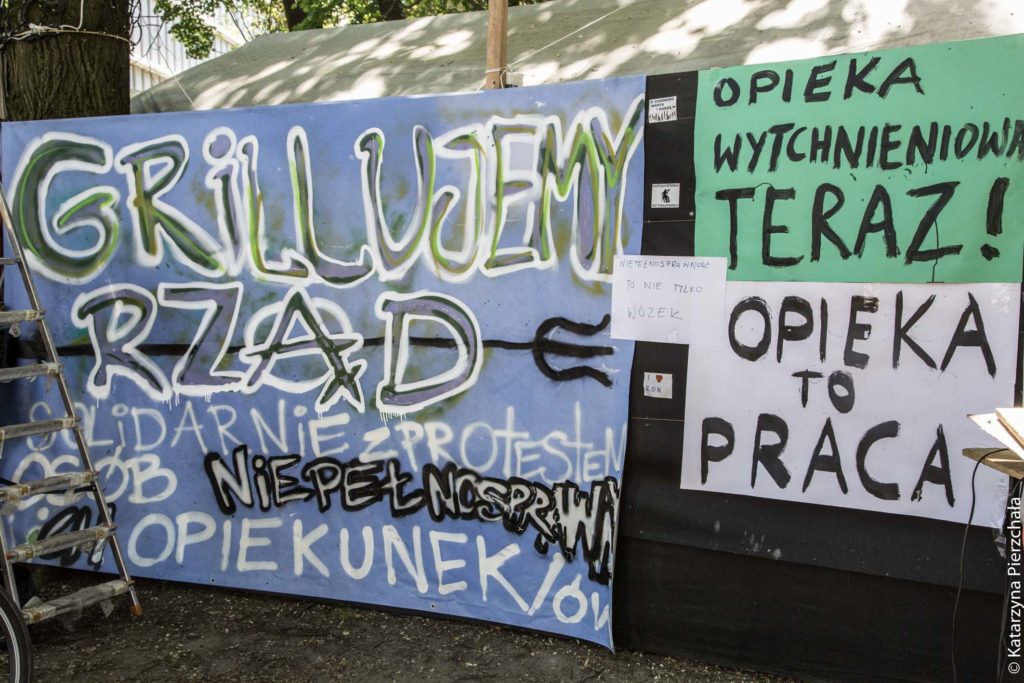 GRiLLUJEMY
RZĄD
SOLiDARNiE z PROTESTEM
OSÓB NiEPEŁNOSPRAWN
OPIEKUNEK/ÓW
OPIEKA
WYTCHNIENIOWA
TERAZ!
NIEPEŁNOSPRAWNOŚĆ
TO NIE TYLKO
WÓZEK
I ❤ RON
OPIEKA
TO
PRACA
© Katarzyna Pierzchała